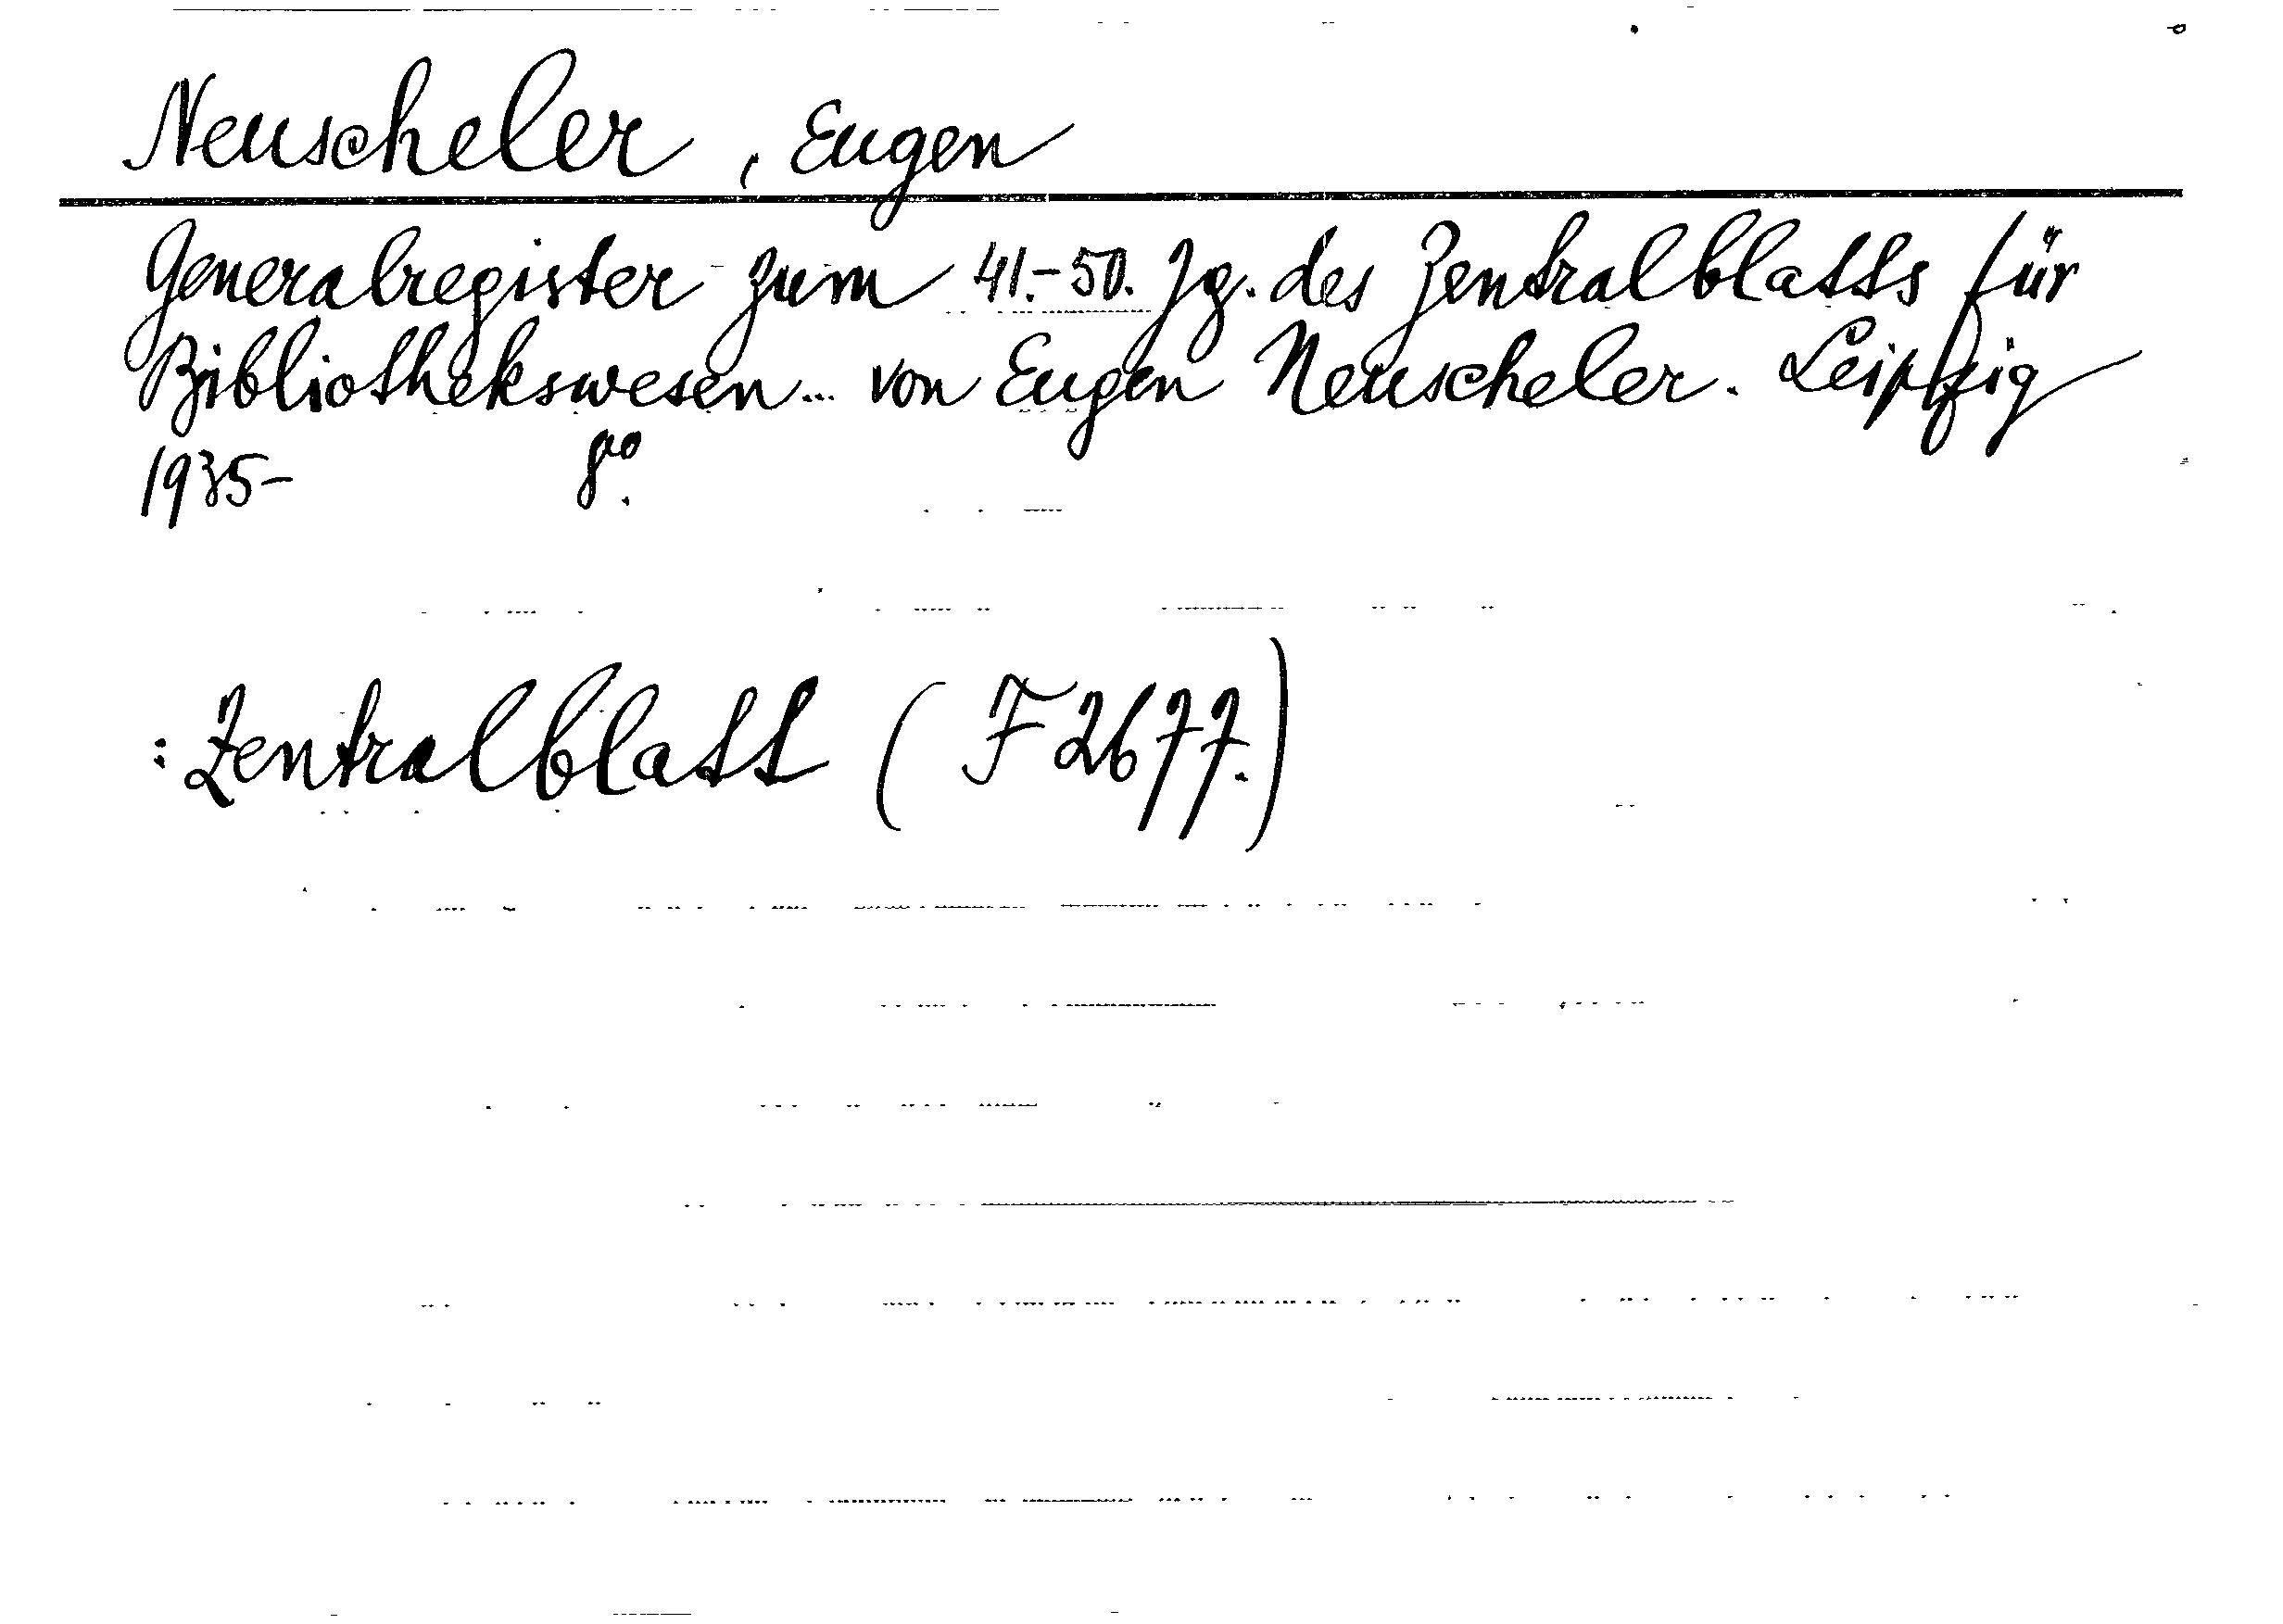 Neuscheler, Eugen
Generalregister zum 41.-50. Jg. des Zentralblatts für
Bibliothekswesen... von Eugen Neuscheler. Leipzig
1935- 8°.
: Zentralblatt (F 2677.)